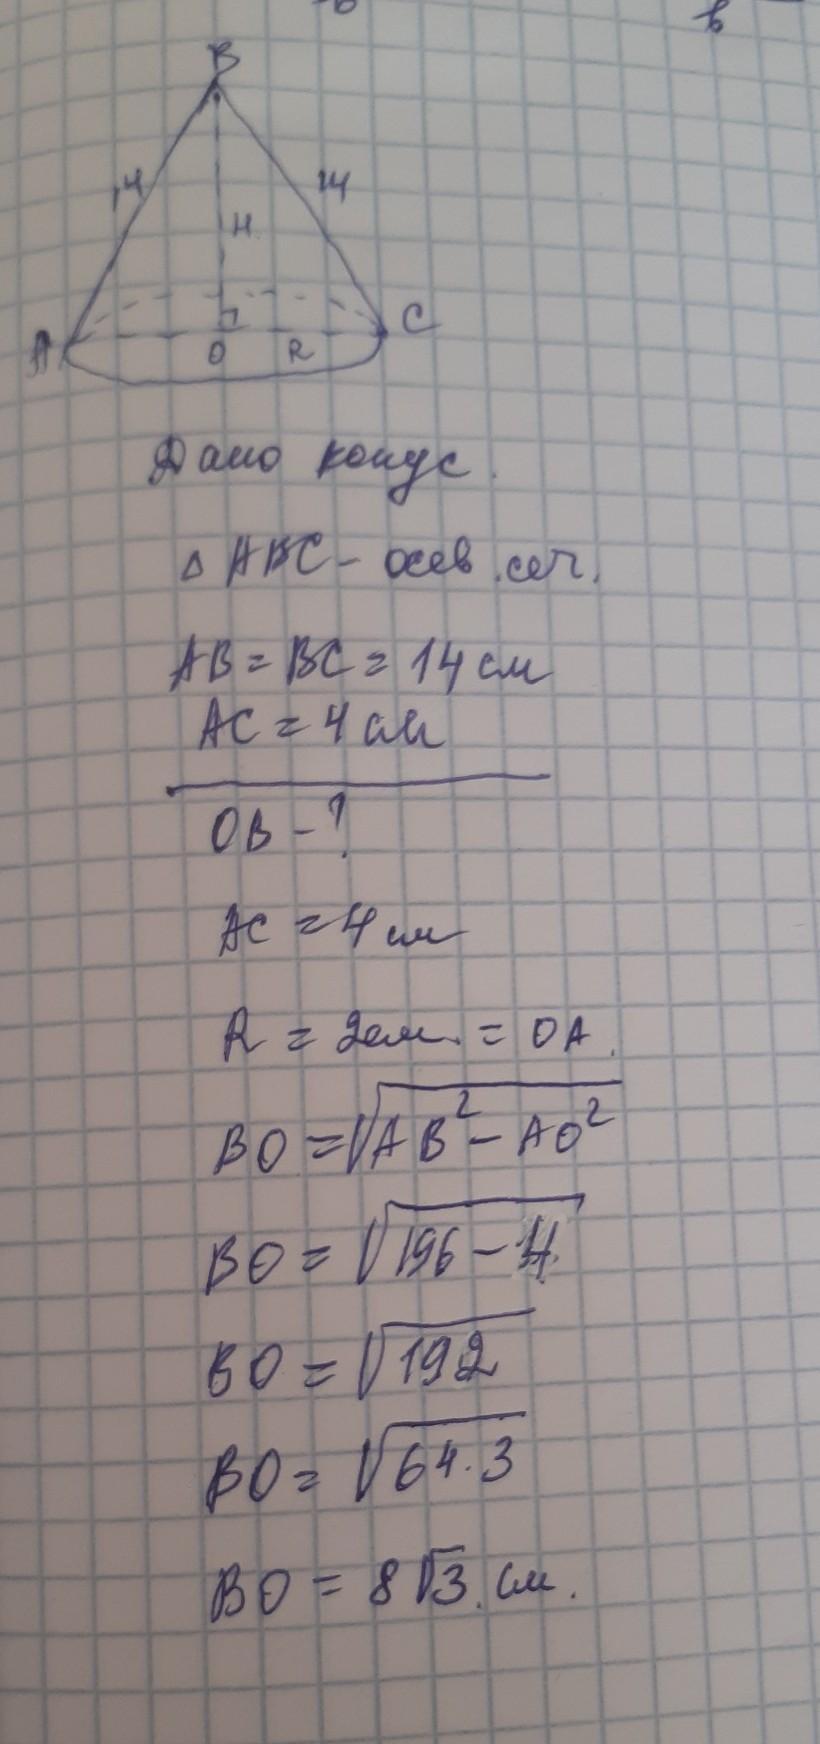 в
B
14
14
H
A
O
R
C
Дано конус.
Δ ABC - осев. сеч.
AB = BC = 14 см
AC = 4 см
OB - ?
AC = 4 см
R = 2см. = OA.
BO = √AB² - AO²
BO = √196 - 4
BO = √192
BO = √64·3
BO = 8√3 см.